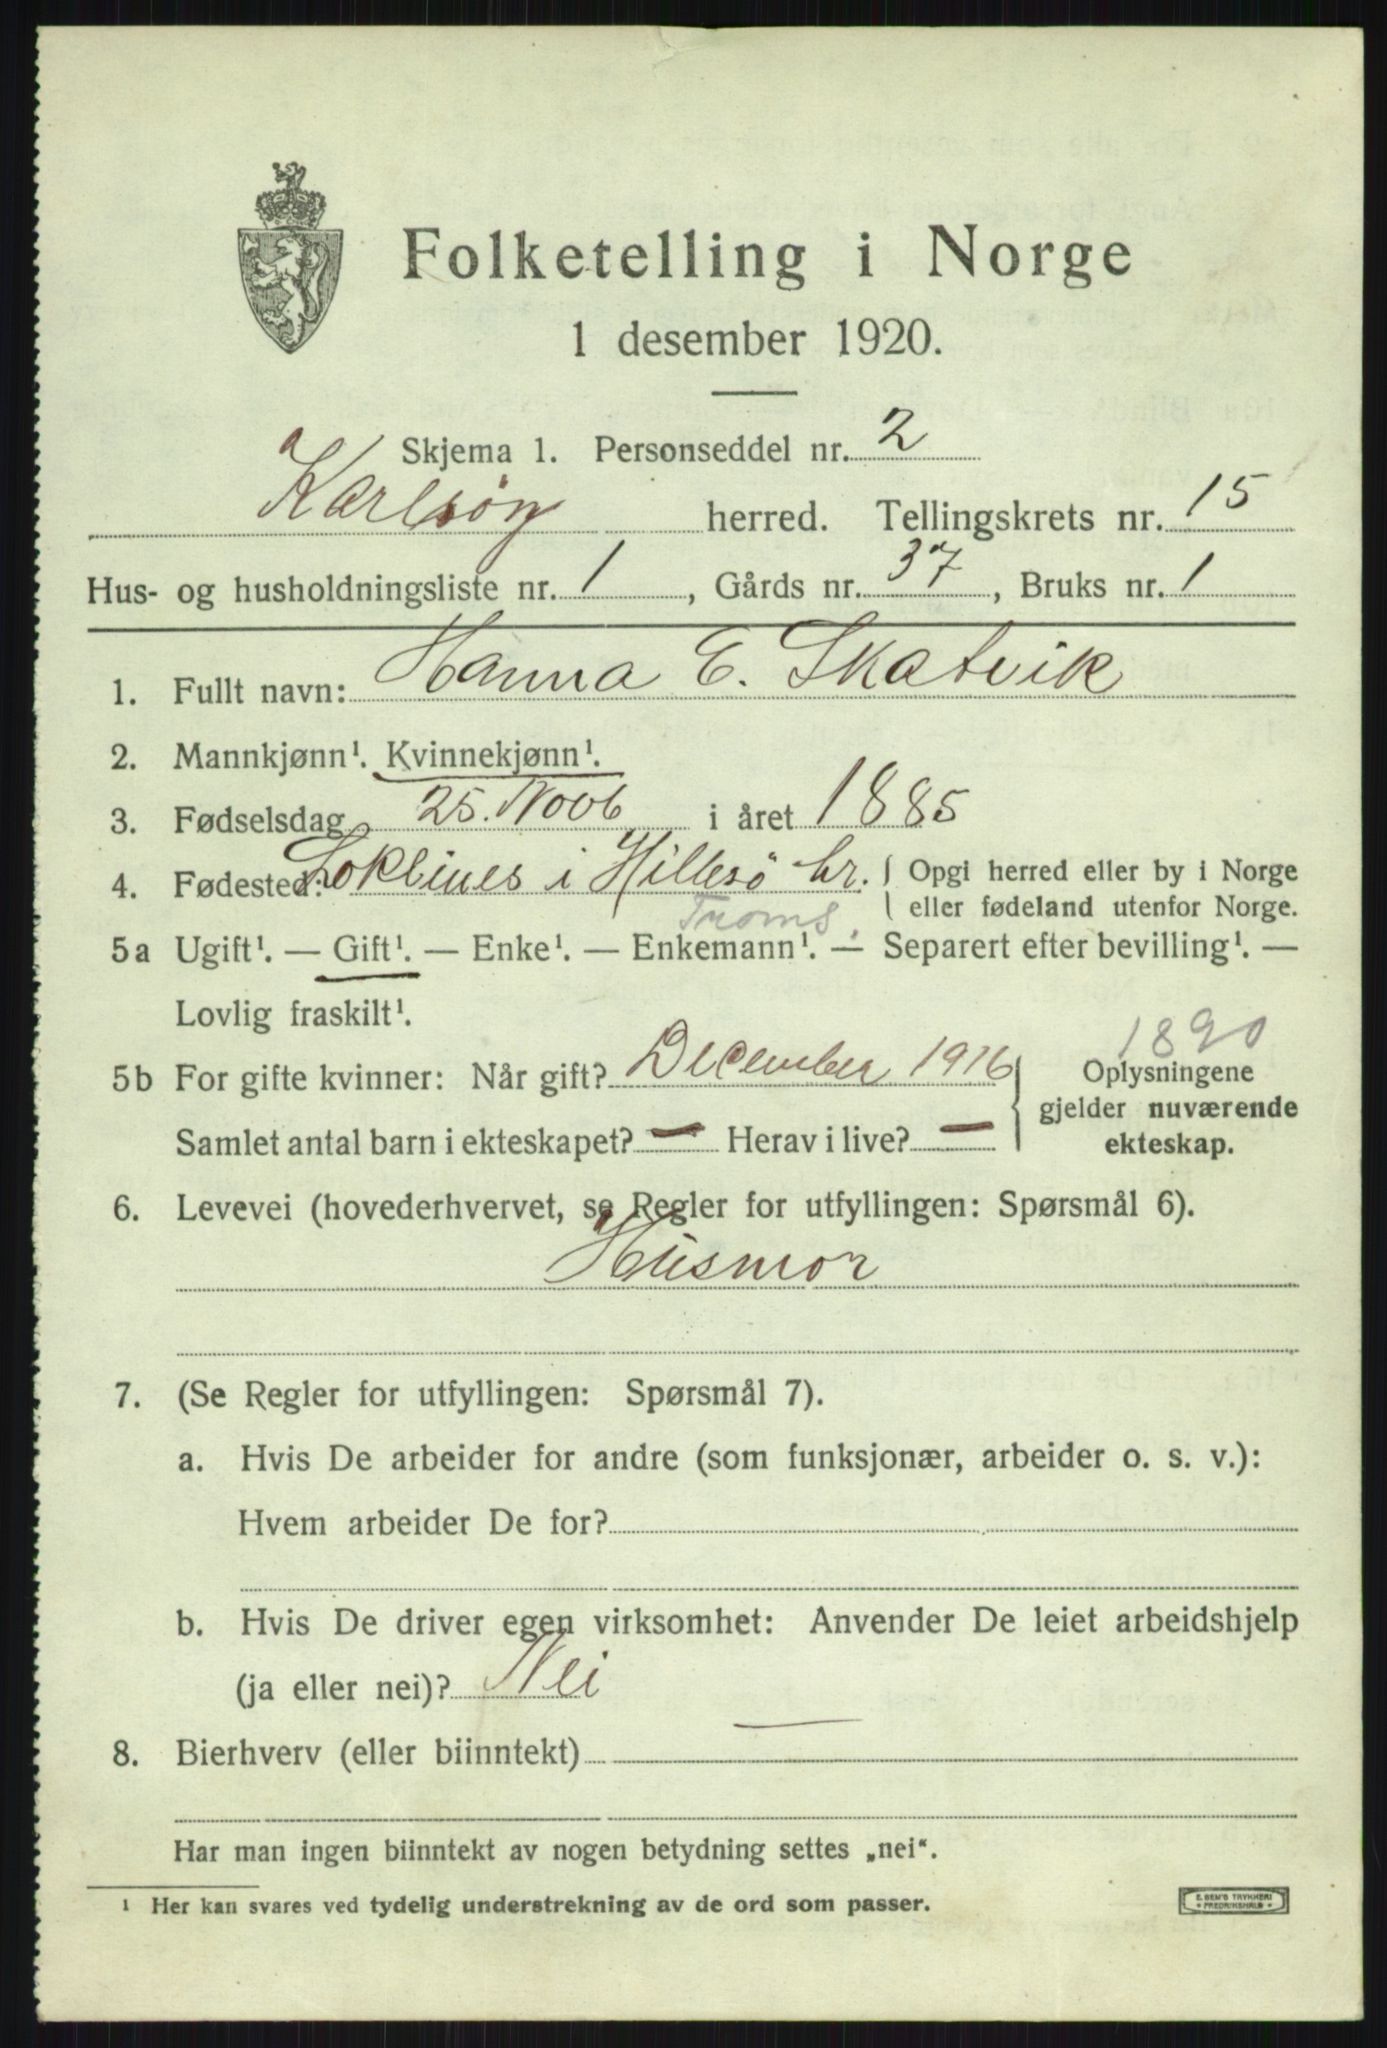 Folketelling i Norge
1 desember 1920.
Skjema 1. Personseddel nr. 2
Karlsöy herred. Tellingskrets nr. 15
Hus- og husholdningsliste nr. 1, Gårds nr. 37, Bruks nr. 1
1. Fullt navn: Hanna E. Skatvik
2. Mannkjønn¹. Kvinnekjønn¹.
3. Fødselsdag 25. Novb i året 1885
4. Fødested: i Hillesö hr. Opgi herred eller by i Norge
eller fødeland utenfor Norge.
Troms.
5a Ugift¹. — Gift¹. — Enke¹. — Enkemann¹. — Separert efter bevilling¹. —
Lovlig fraskilt¹.
1890
5b For gifte kvinner: Når gift? December 1916 Oplysningene
gjelder nuværende
Samlet antal barn i ekteskapet? — Herav i live? — ekteskap.
6. Levevei (hovederhvervet, se Regler for utfyllingen: Spørsmål 6).
Husmor
7. (Se Regler for utfyllingen: Spørsmål 7).
a. Hvis De arbeider for andre (som funksjonær, arbeider o. s. v.):
Hvem arbeider De for?
b. Hvis De driver egen virksomhet: Anvender De leiet arbeidshjelp
(ja eller nei)? Nei
8. Bierhverv (eller biinntekt) —
Har man ingen biinntekt av nogen betydning settes „nei“.
¹ Her kan svares ved tydelig understrekning av de ord som passer.
E. SEM'S TRYKKERI
FREDRIKSHALD